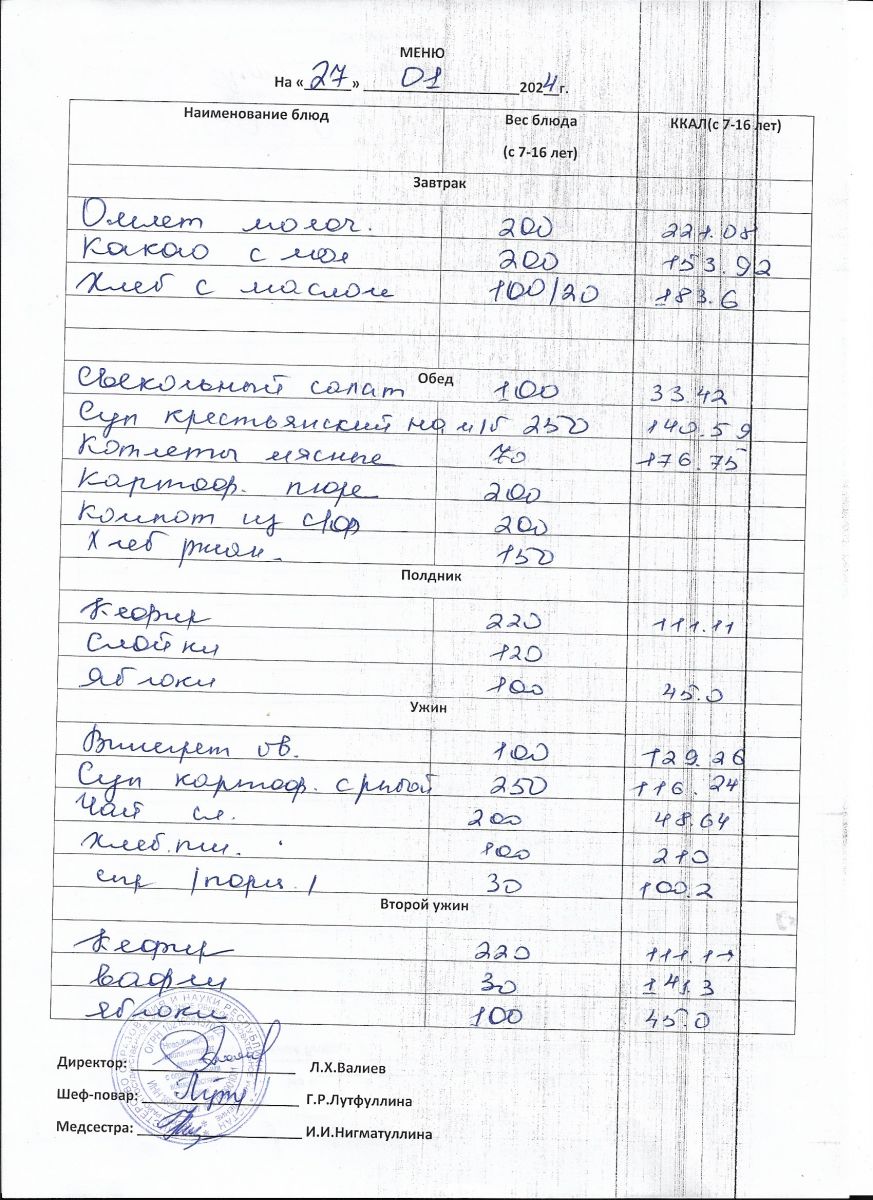 МЕНЮ
На «27» 01 2024 г.
Наименование блюд Вес блюда (с 7-16 лет) ККАЛ(с 7-16 лет)
Завтрак
Омлет молоч. 200 221.08
Какао с мол 200 153.92
Хлеб с маслом 100/20 183.6
Обед
Свекольный салат 100 33.42
Суп крестьянский на м/б 250 140.59
Котлеты мясные 70 176.75
Картоф. пюре 200
Компот из с/ф 200
Хлеб ржан. 150
Полдник
Кефир 220 111.11
Слойки 120
Яблоки 100 45.0
Ужин
Винегрет ов. 100 129.26
Суп картоф. с рыбой 250 116.24
Чай сл. 200 48.64
Хлеб.пш. 100 210
сыр /порц./ 30 100.2
Второй ужин
Кефир 220 111.11
Вафли 30 141.3
Яблоки 100 45.0
Директор: Л.Х.Валиев
Шеф-повар: Г.Р.Лутфуллина
Медсестра: И.И.Нигматуллина